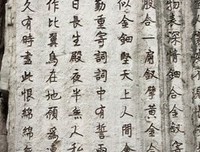 物表深情鈿合金釵
股合一扇釵擘黃金合
似金鈿堅天上人間會
勤重寄詞詞中有誓兩
日長生殿夜半無人私
作比翼鳥在地願為
久有時盡此恨綿綿